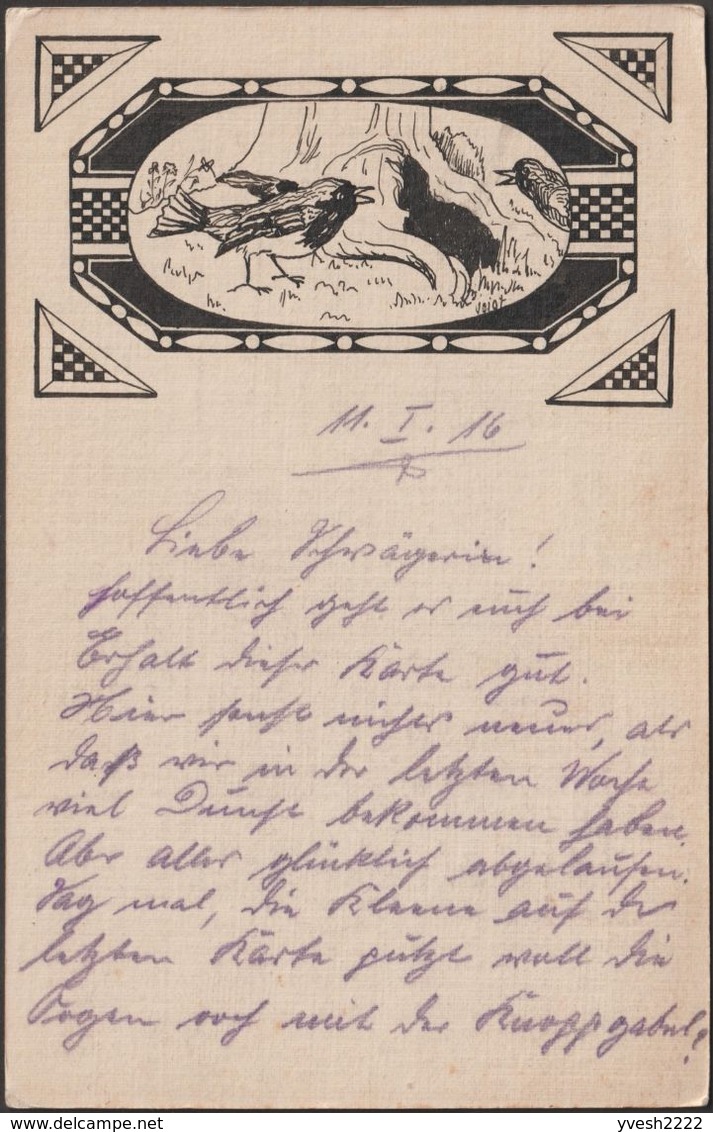 Voigt
11. I. 16
Liebe Schwägerin!
Hoffentlich geht es euch bei
Erhalt dieser Karte gut.
Hier sonst nichts neues, als
daß wir in der letzten Woche
viel Dunst bekommen haben.
Aber alles glücklich abgelaufen.
Sag mal, die Kleene auf der
letzten Karte putzt woll die
Oogen ooch mit der Knoppgabel?
yvesh2222